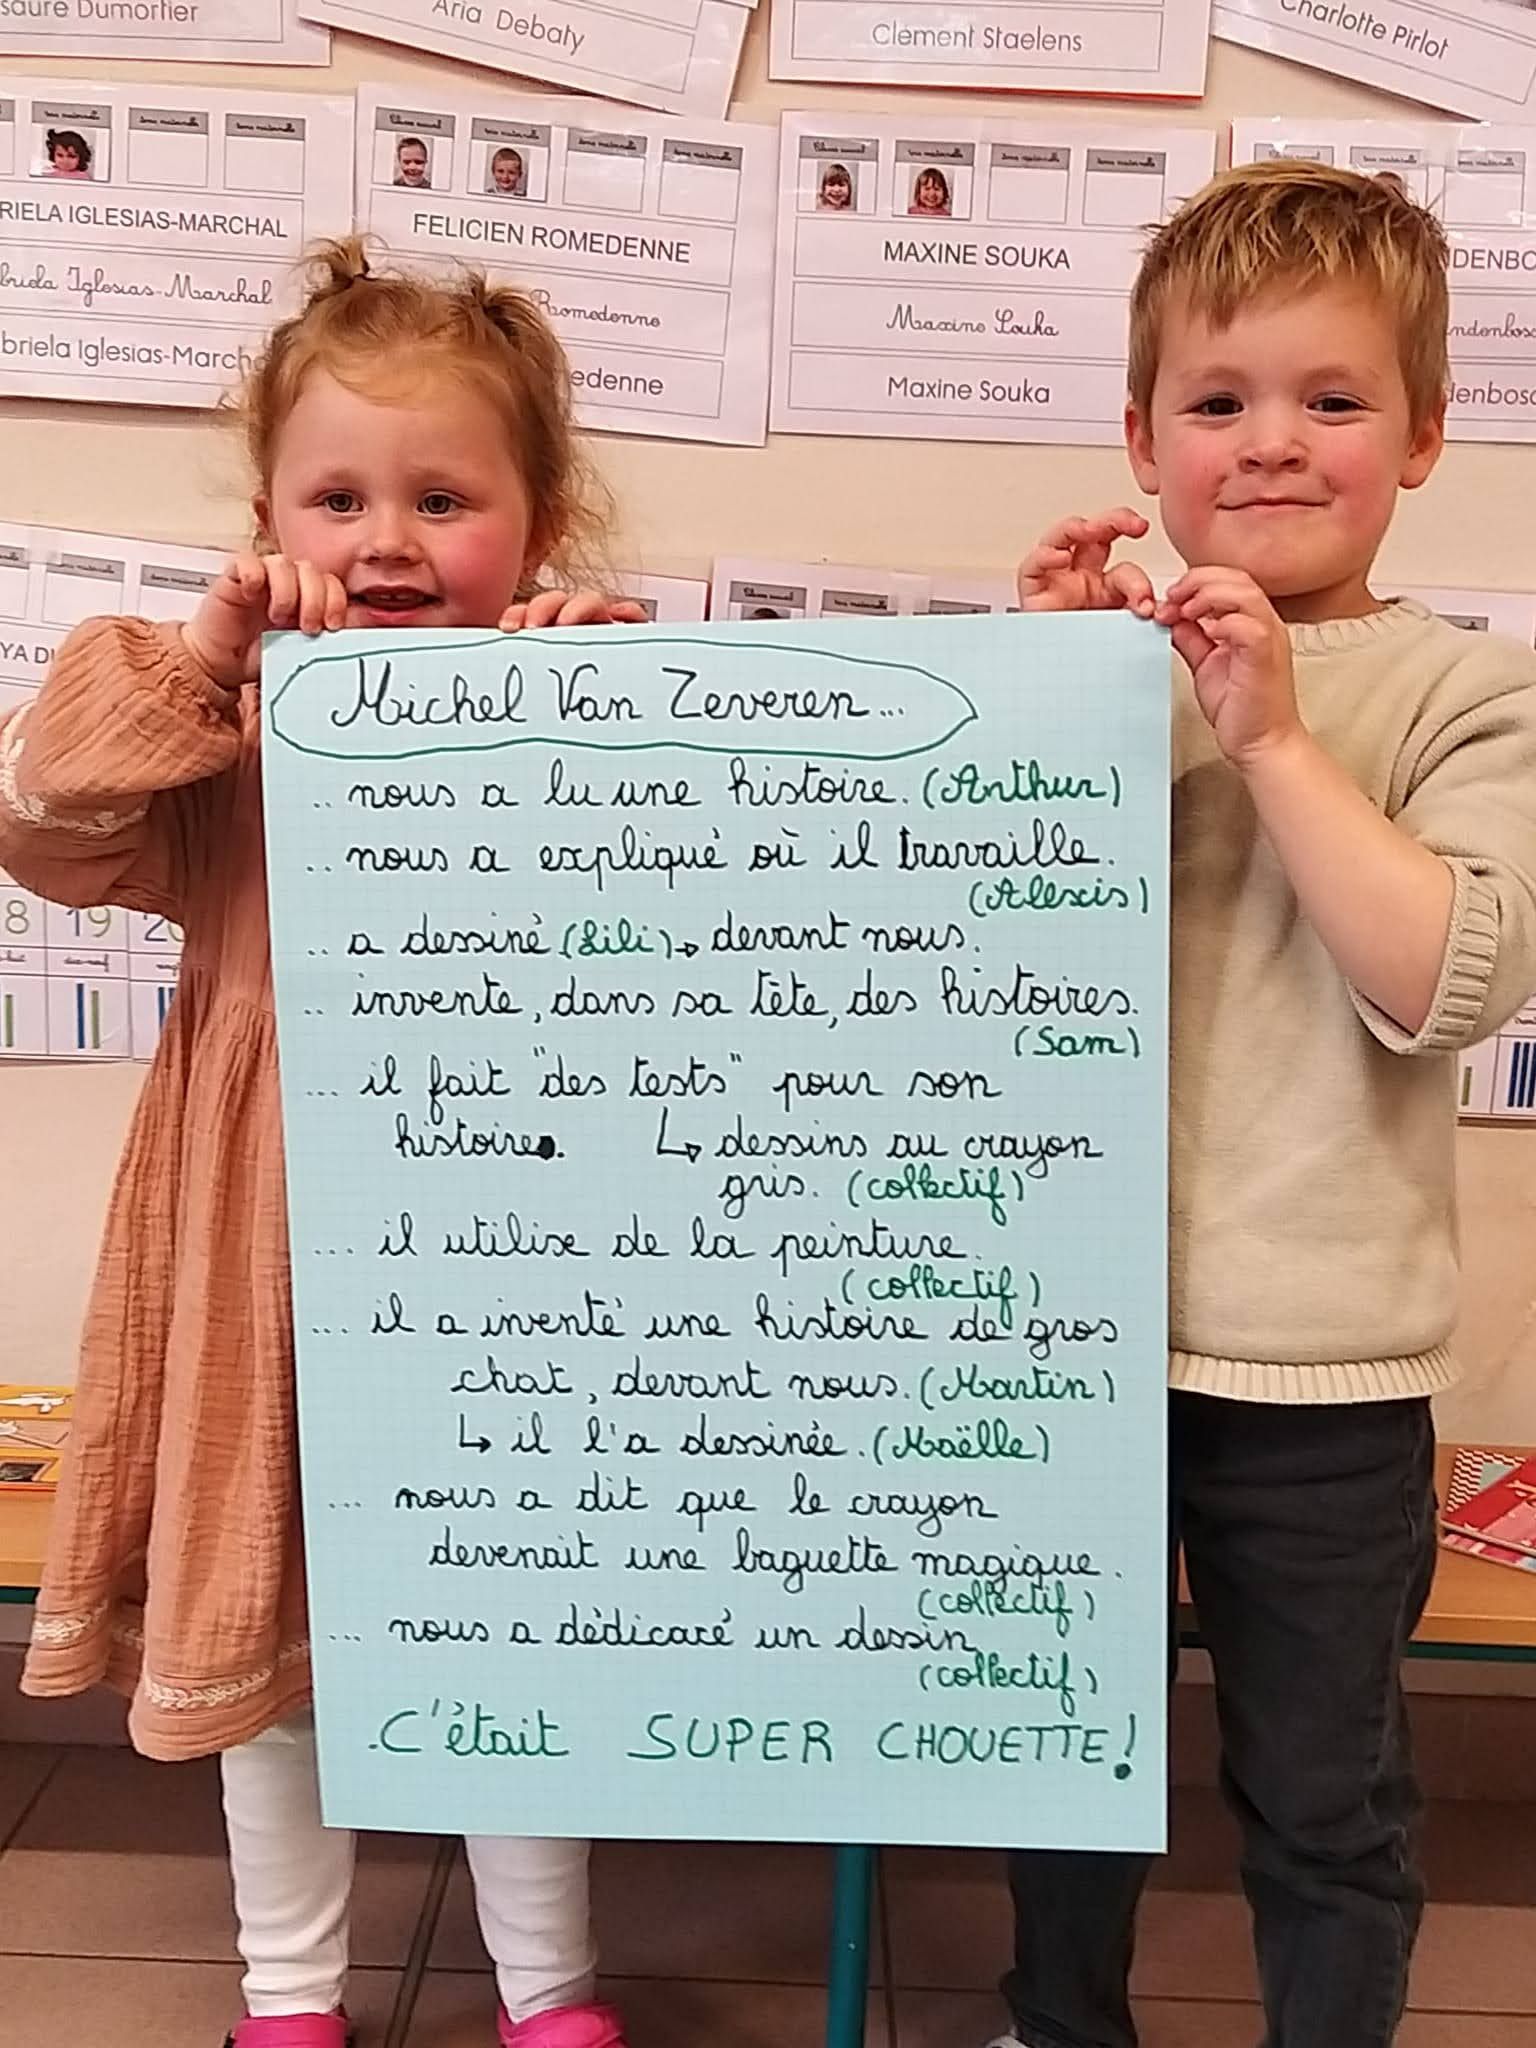 saure Dumortier
Aria Debaty
Clément Staelens
Charlotte Pirlot
RIELA IGLESIAS-MARCHAL
briela Iglesias-Marchal
briela Iglesias-March
FELICIEN ROMEDENNE
Romedenne
edenne
MAXINE SOUKA
Maxine Souka
Maxine Souka
DENBO
ndenbosc
denbosc
YA DU
8 19 20
Michel Van Zeveren...
.. nous a lu une histoire. (Arthur)
.. nous a expliqué où il travaille.
(Alexis)
.. a dessiné (Lili) → devant nous.
.. invente, dans sa tête, des histoires.
(Sam)
... il fait "des tests" pour son
histoire. ↳ dessins au crayon
gris. (collectif)
... il utilise de la peinture.
(collectif)
... il a inventé une histoire de gros
chat, devant nous. (Martin)
↳ il l'a dessinée. (Maëlle)
... nous a dit que le crayon
devenait une baguette magique.
(collectif)
... nous a dédicacé un dessin
(collectif)
C'était SUPER CHOUETTE!